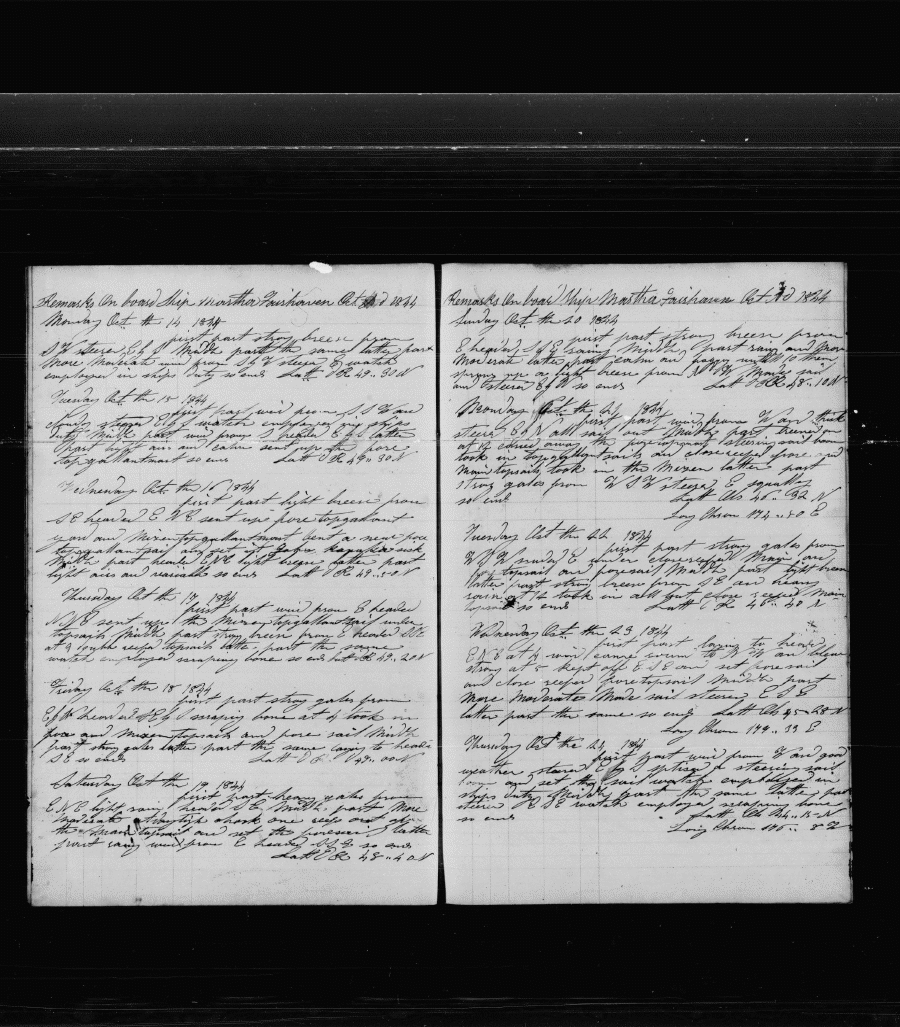 Remarks On board Ship Martha Fairhaven Oct 1844
Monday Oct th 14 1844
first part strong breeze from
S W steered E by S Middle part the same latter part
more moderate wind from N W steered E watch
employed in ships duty so ends Latt D R 49..30 N
Tuesday Oct th 15 1844
first part wind from S S W and
cloudy steered E by S watch employed in ships
duty Middle part wind from S headed E by S latter
part light airs and calm sent up the fore
topgallantmast so ends Latt D R 49..30 N
Wednesday Oct th 16 1844
first part light breeze from
S E headed E N E sent up fore topgallant
yard and Mizen topgallantmast bent a new fore
topgallantsail and set it
Middle part headed ENE light breeze latter part
light airs and variable so ends Latt D R 49..
Thursday Oct th 17 1844
first part wind from E headed
N N E sent up the Mizen topgallantsail under
topsails Middle part strong breeze from E headed
at 4 double reefd topsails latter part the same
watch employed scraping bone so ends Latt D R 49..20 N
Friday Oct th 18 1844
first part strong gales from
E by N headed S E by S scraping bone at 4 took in
fore and mizen topsails and fore sail Middle
part strong gales latter part the same laying to heads
S E so ends Latt D R 49..00 N
Saturday Oct th 19 1844
first part heavy gales from
E N E light rain heads S E Middle part more
moderate at daylight shook one reef out of
the Main topsail and set the foresail latter
part rainy wind from E headed S S E so ends
Latt D R 48..40 N
Remarks On board Ship Martha Fairhaven Oct 3d 1844
Sunday Oct th 20 1844
first part strong breeze from
E heading S S E rainy Middle part rain and more
moderate latter part calm and foggy until 10 then
sprung up a light breeze from N W Made sail
and steered E by N so ends Latt D R 48..10 N
Monday Oct th 21 1844
first part wind from W and thick
steered E by N all sail out Middle part freshened
at 12 carried away the fore topmast steering sail boom
took in topgallantsails and close reefed fore and
Main topsails took in the Mizen latter part
strong gales from W S W steered E squally
so ends Latt Obs 46..32 N
Long Chrom 172..50 E
Tuesday Oct the 22 1844
first part strong gales from
W S W scudded E under close reefed Main and
fore topsail and foresail Middle part light breeze
latter part strong breeze from S E and heavy
rain at 12 took in all but close reefed Main
topsail so ends Latt D R 46..40 N
Wednesday Oct the 23 1844
first part laying to heading
E N E at 4 wind canted round to S W and blew
strong at 5 kept off E S E and set fore sail
and close reefed fore topsail Middle part
more Moderate Made sail steered E S E
latter part the same so ends Latt Obs 45..28 N
Long Chrom 174..33 E
Thursday Oct the 24 1844
first part wind from W and good
weather steered E by S spliced a steering sail
boom and set the sail watch employed in
ships duty Middle part the same latter part
steered E S E watch employed scraping bone
so ends Latt Obs 44..15 N
Long Chrom 176..8 E